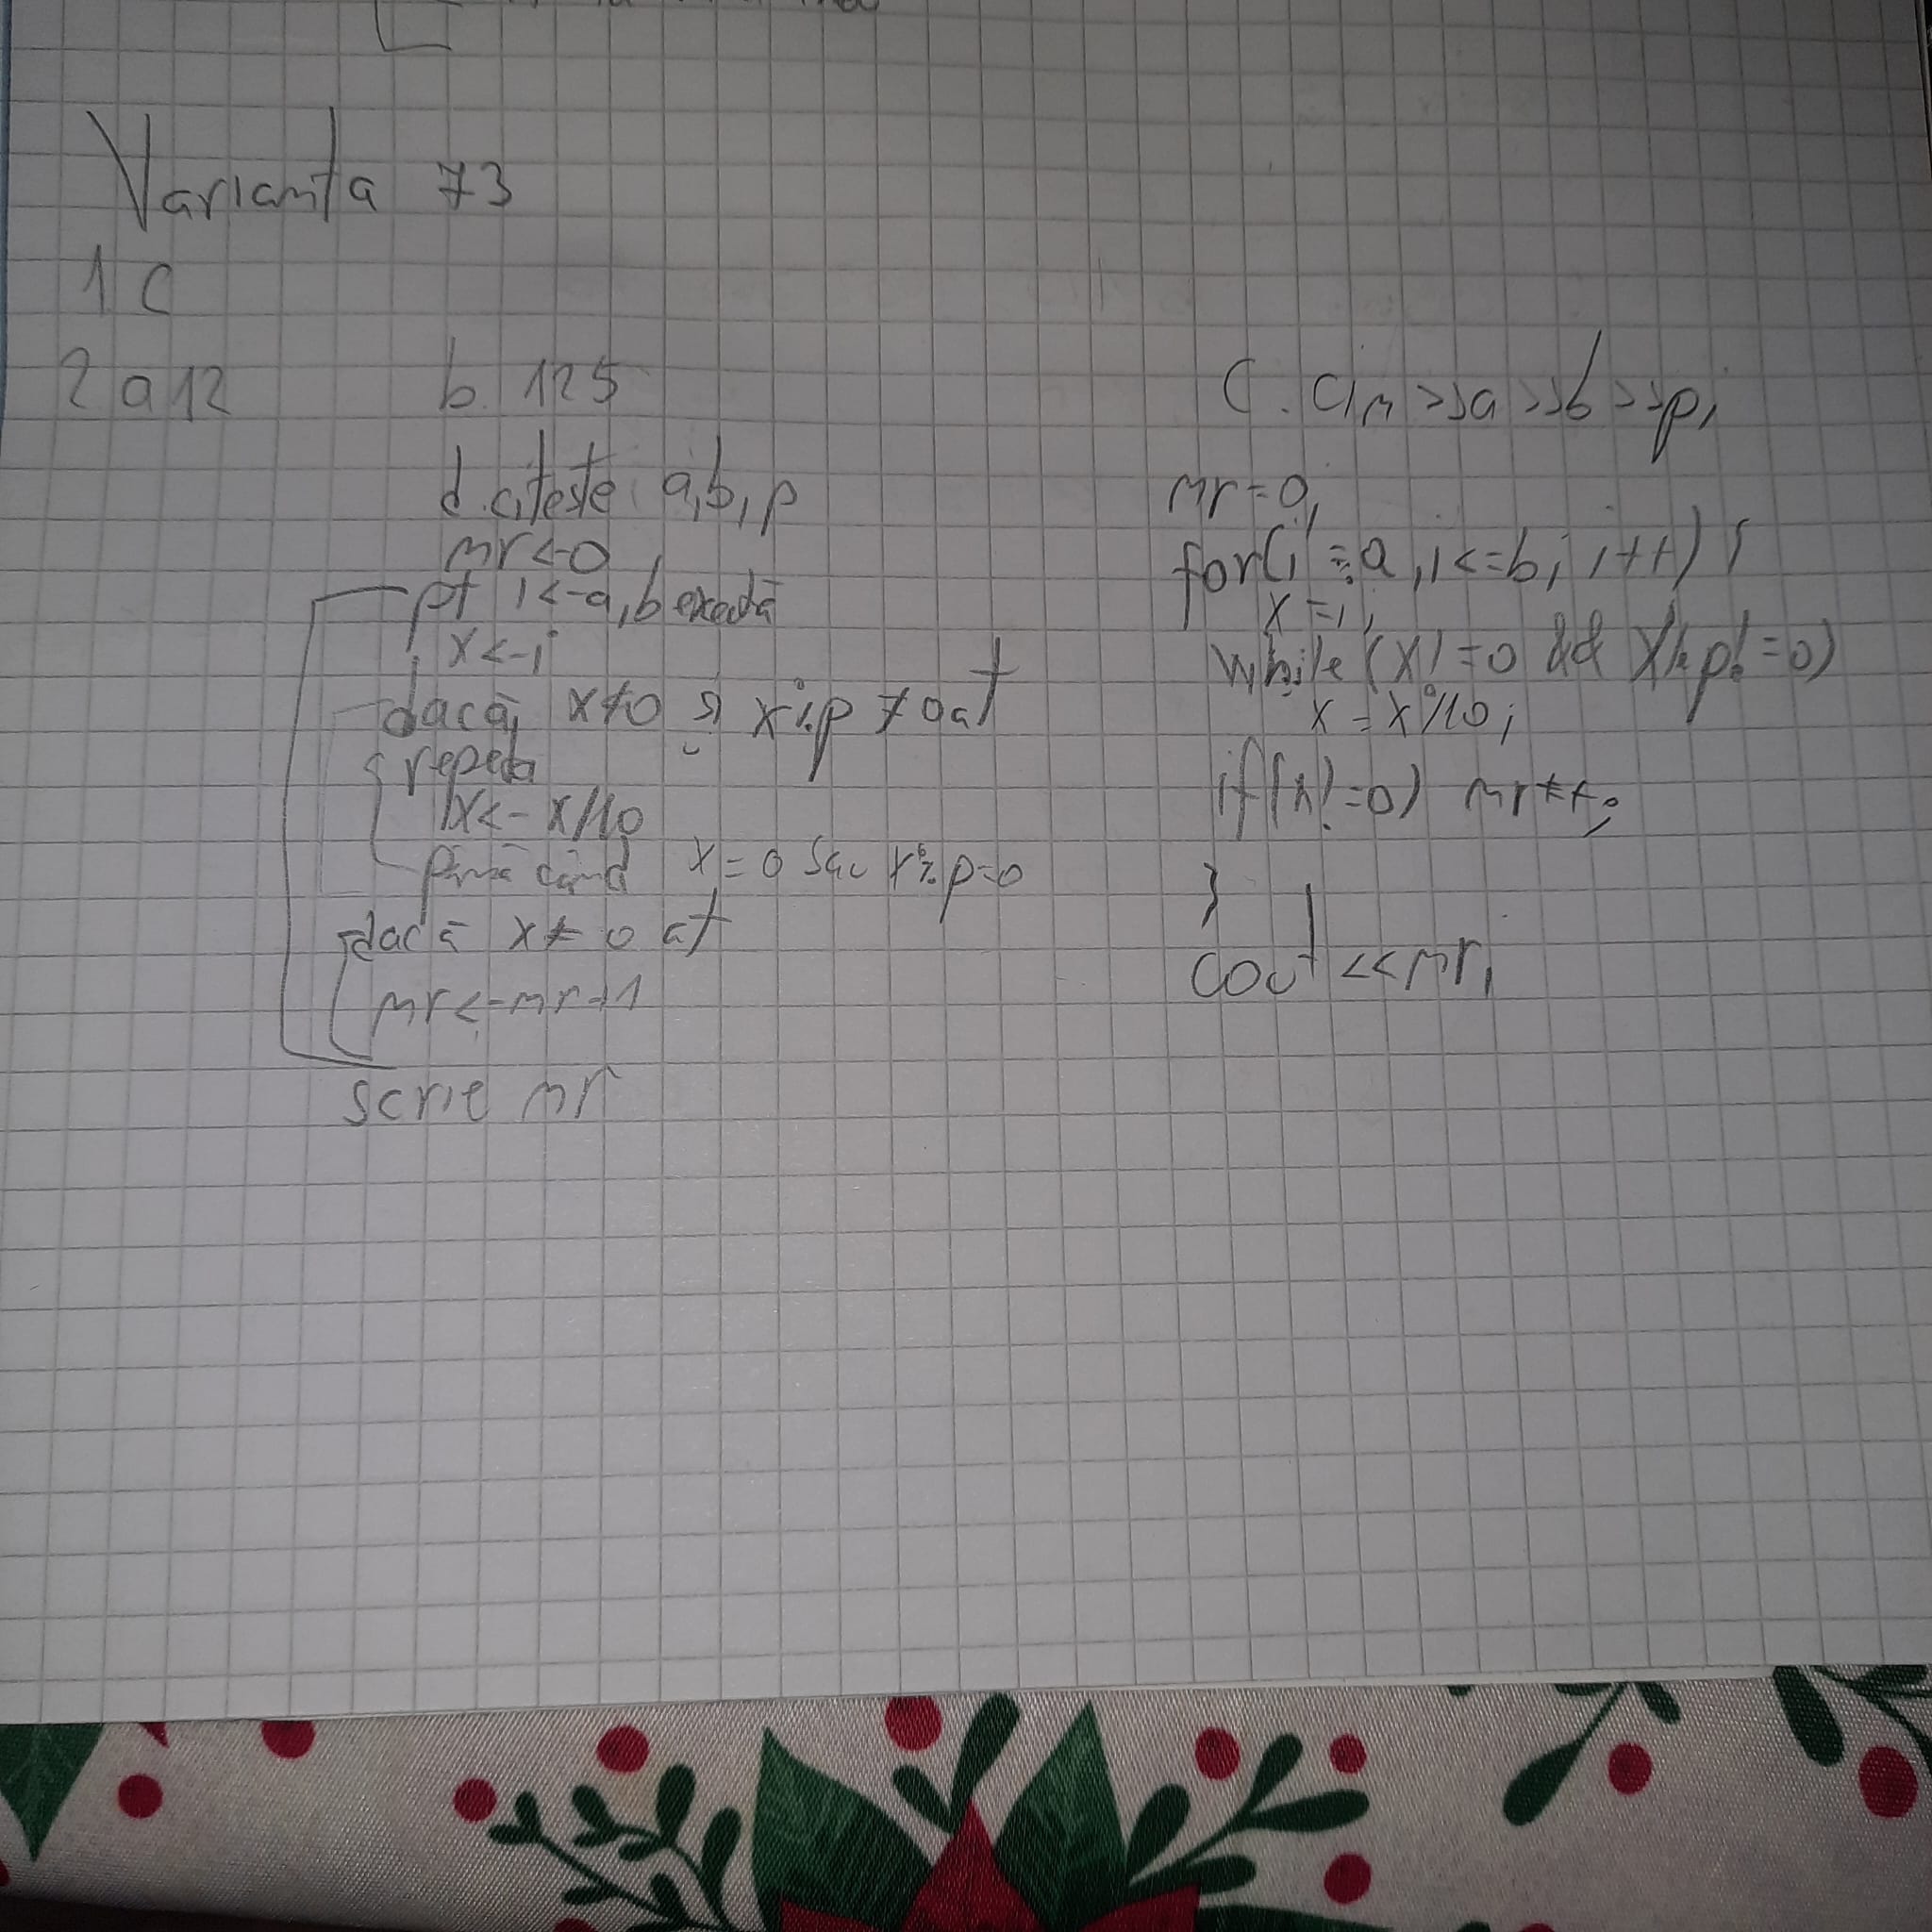 Varianta 73
1 C
2 a 12
b. 125
d. citește a,b,p
nr<-0
pt i<-a,b execută
x<-i
dacă x≠0 și x%p≠0 at
repetă
x<-x/10
până când x=0 sau x%p=0
dacă x≠0 at
nr<-nr+1
scrie nr
C. cin>>a>>b>>p;
nr=0;
for(i=a;i<=b;i++){
x=i;
while(x!=0 && x%p!=0)
x=x/10;
if(x!=0) nr++;
}
cout<<nr;